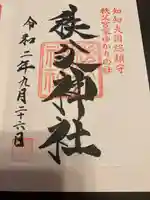 知知夫国総鎮守
秩父宮家ゆかりの社
秩父神社
令和二年九月二十六日